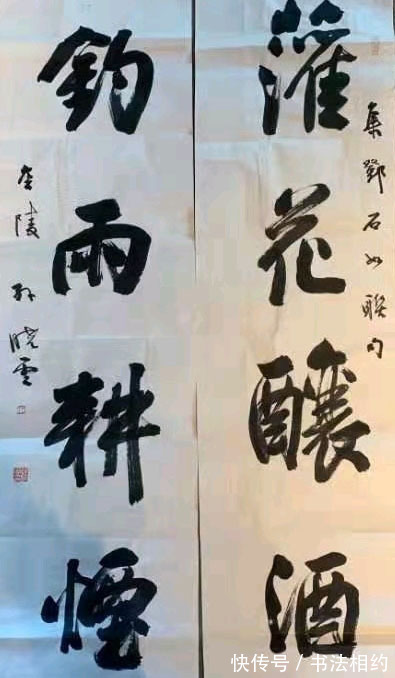 集鄧石如聯句
灌花釀酒
釣雨耕煙
金陵孙晓雲
快传号/书法相约